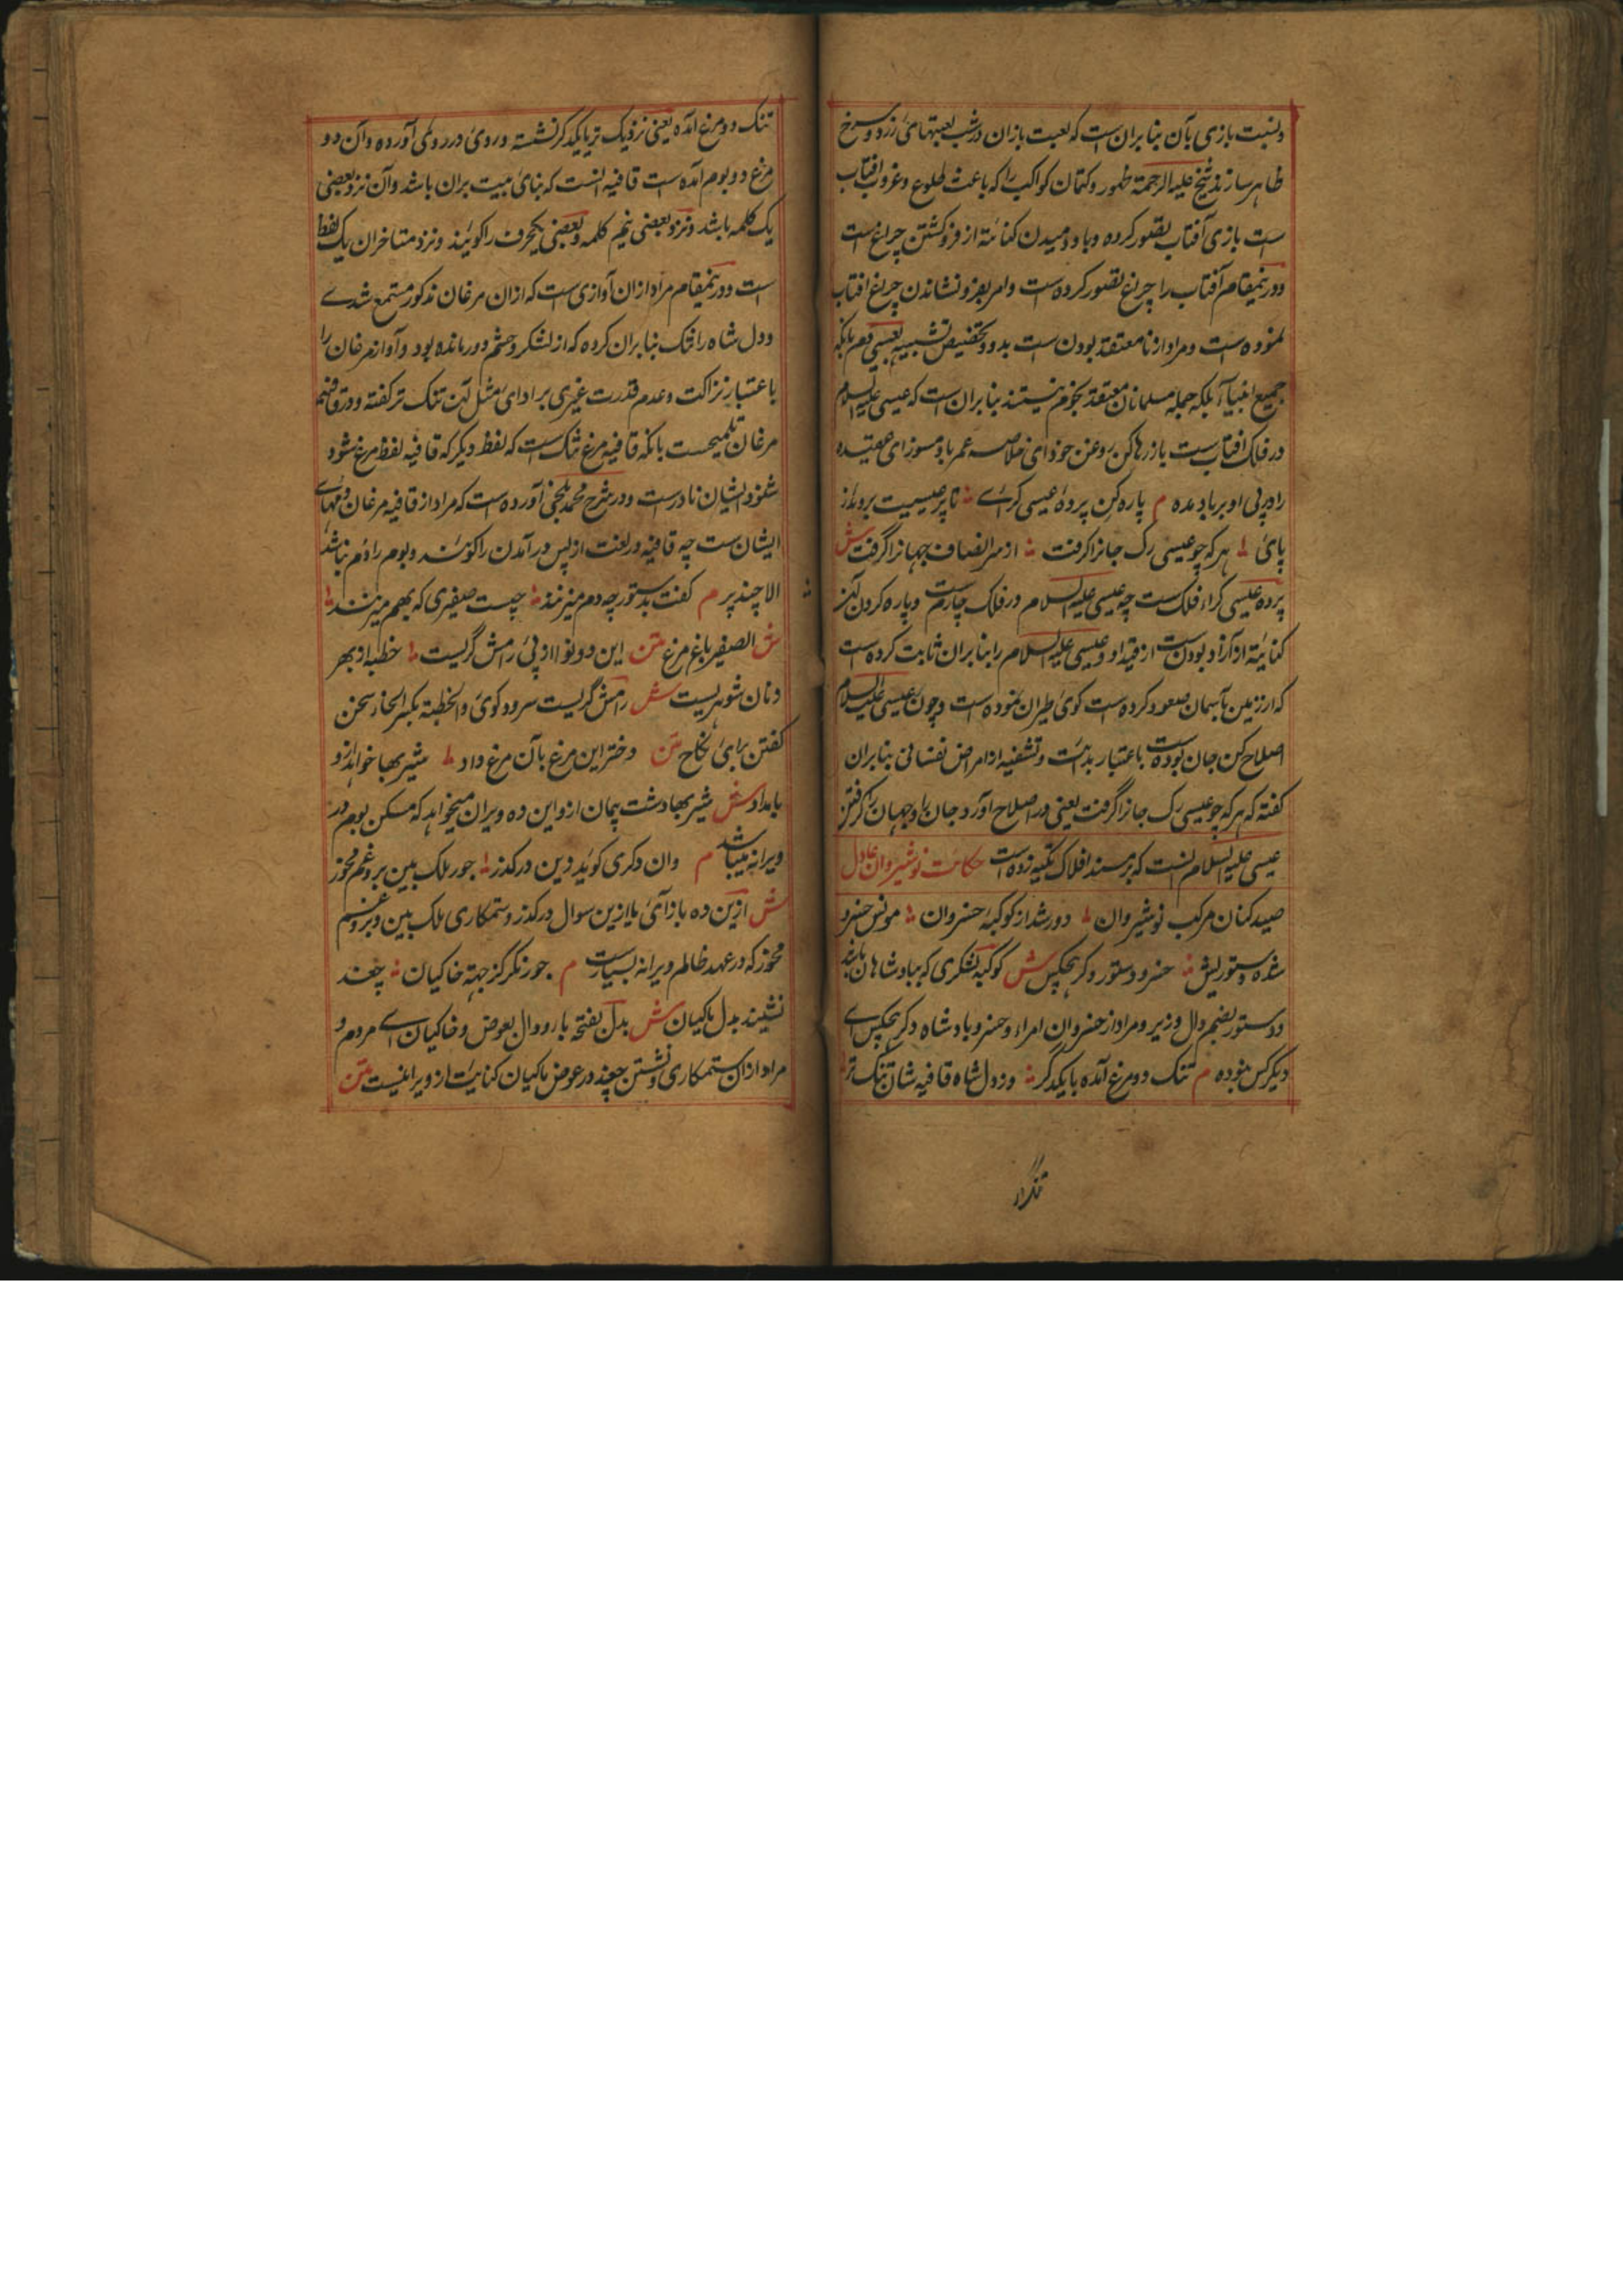 ونسبت بازی بآن بنا بران ست که لعبت بازان در شب لعبتهای زرد و سرخ
ظاهر سازند شیخ علیه الرحمة ظهور و کتمان کواکب را که باعث طلوع و غروب افتاب
ست بازی آفتاب تصور کرده و باد دمیدن کنایة از فرو کشتن چراغ است
و درینمقام آفتاب را چراغ تصور کرده ست و امر بفرو نشاندن چراغ افتاب
نموده ست و مراد از نا معتقد بودن ست بدو و تخصیص تشبیه بعیسی با نکه
جمیع انبیا بلکه جمله مسلمانان معتقد نیستند بنا بران است که عیسی علیه السلام
در فلک افتاب ست باز رها کن روغن خود ای خلاصه عمر باد مسوز ای عقیده
را در پی او برباد مده م پاره کن پرده عیسی گرای تا پر عیسیت بروید ز
پای هر که چو عیسی رگ جانرا گرفت از سر انصاف جهانرا گرفت ش
پرده عیسی گرا فلک ست چه عیسی علیه السلام در فلک چارم ست و پاره کردن آن
کنایة از آزاد بودن ست از قید او و عیسی علیه السلام را بنا بران ثابت کرده است
که از زمین بآسمان صعود کرده ست گوی طیران نموده ست و چون عیسی علیه السلام
اصلاح کن جان بوده ست باعتبار و تشفیه از امراض نفسانی بنا بران
گفته که هر که چو عیسی رگ جانرا گرفت یعنی در اصلاح آورد جان را و جهان را گرفتن
عیسی علیه السلام انست که بر مسند افلاک تکیه زده است حکایت نوشیروان عادل
صید کنان مرکب نوشیروان دور شد از کوکبه خسروان مونس خسرو
شده دستور بس خسرو و دستور و دگر هیچکس ش کوکبه لشکری که با پادشاهان باشد
و دستور بضم دال وزیر و مراد از خسروان امراء و خسرو بادشاه دگر هیچکس ای
دیگر کس نبوده م تنگ دو مرغ آمده با یکدگر وز دل شاه قافیه شان تنگ تر
تنک دو مرغ امده یعنی نزدیک تر با یکدگر نشسته و روی در روی آورده و آن دو
مرغ دو بوم امده ست قافیه انست که بنای بیت بران باشد و آن نزد بعضی
یک کلمه باشد و نزد بعضی نیم کلمه و بعضی یکحرف را گویند و نزد متاخران یک لفظ
است و درینمقام مراد ازان آوازی ست که ازان مرغان مذکور مستمع شدے
و دل شاه را تنگ بنا بران کرده که از لشکر و حشم دور مانده بود و آواز مرغان را
باعتبار نزاکت و عدم قدرت غیری بر ادای مثل آن تنگ تر گفته و در قافیه
مرغان تلمیحست بانکه قافیه مرغ تنگ ست که لفظ دیگر که قافیه لفظ مرغ شود
ایشان نادر ست و در شرح محمد بلخی آورده ست که مراد از قافیه مرغان دمهای
ایشان ست چه قافیه در لغت از پس در آمدن را گویند و بوم را دم نباشد
الا چند پر م گفت بدستور چه دم میزنند چیست صفیری که بهم میزنند
ش الصفیر بانغ مرغ متن این دو نوا از پی رامش گریست خطبه از بهر
ش رامش گریست سرود گوی و الخطبة بکسر الخا سخن
گفتن برای نکاح متن دختر این مرغ بآن مرغ داد شیر بها خواهد ازو
بامداد ش شیر بها و این ده ویران میخواهد که مسکن بوم در
ویرانه میباشد م وان دگری گوید زین درگذر جور ملک بین برو غم مخور
ش ازین ده باز آی یا ازین سوال درگذر و ستمکاری ملک بین و برو غم
مخور که در عهد ظالم ویرانه بسیار ست م جور نگر کز جهة خاکیان چغد
نشیند بدل ماکیان ش بدل بفتحه با و دال بعوض و خاکیان اے مردم و
مراد ازان ستمکاری و نشستن چغد در عوض ماکیان کنایت از ویرانیست متن